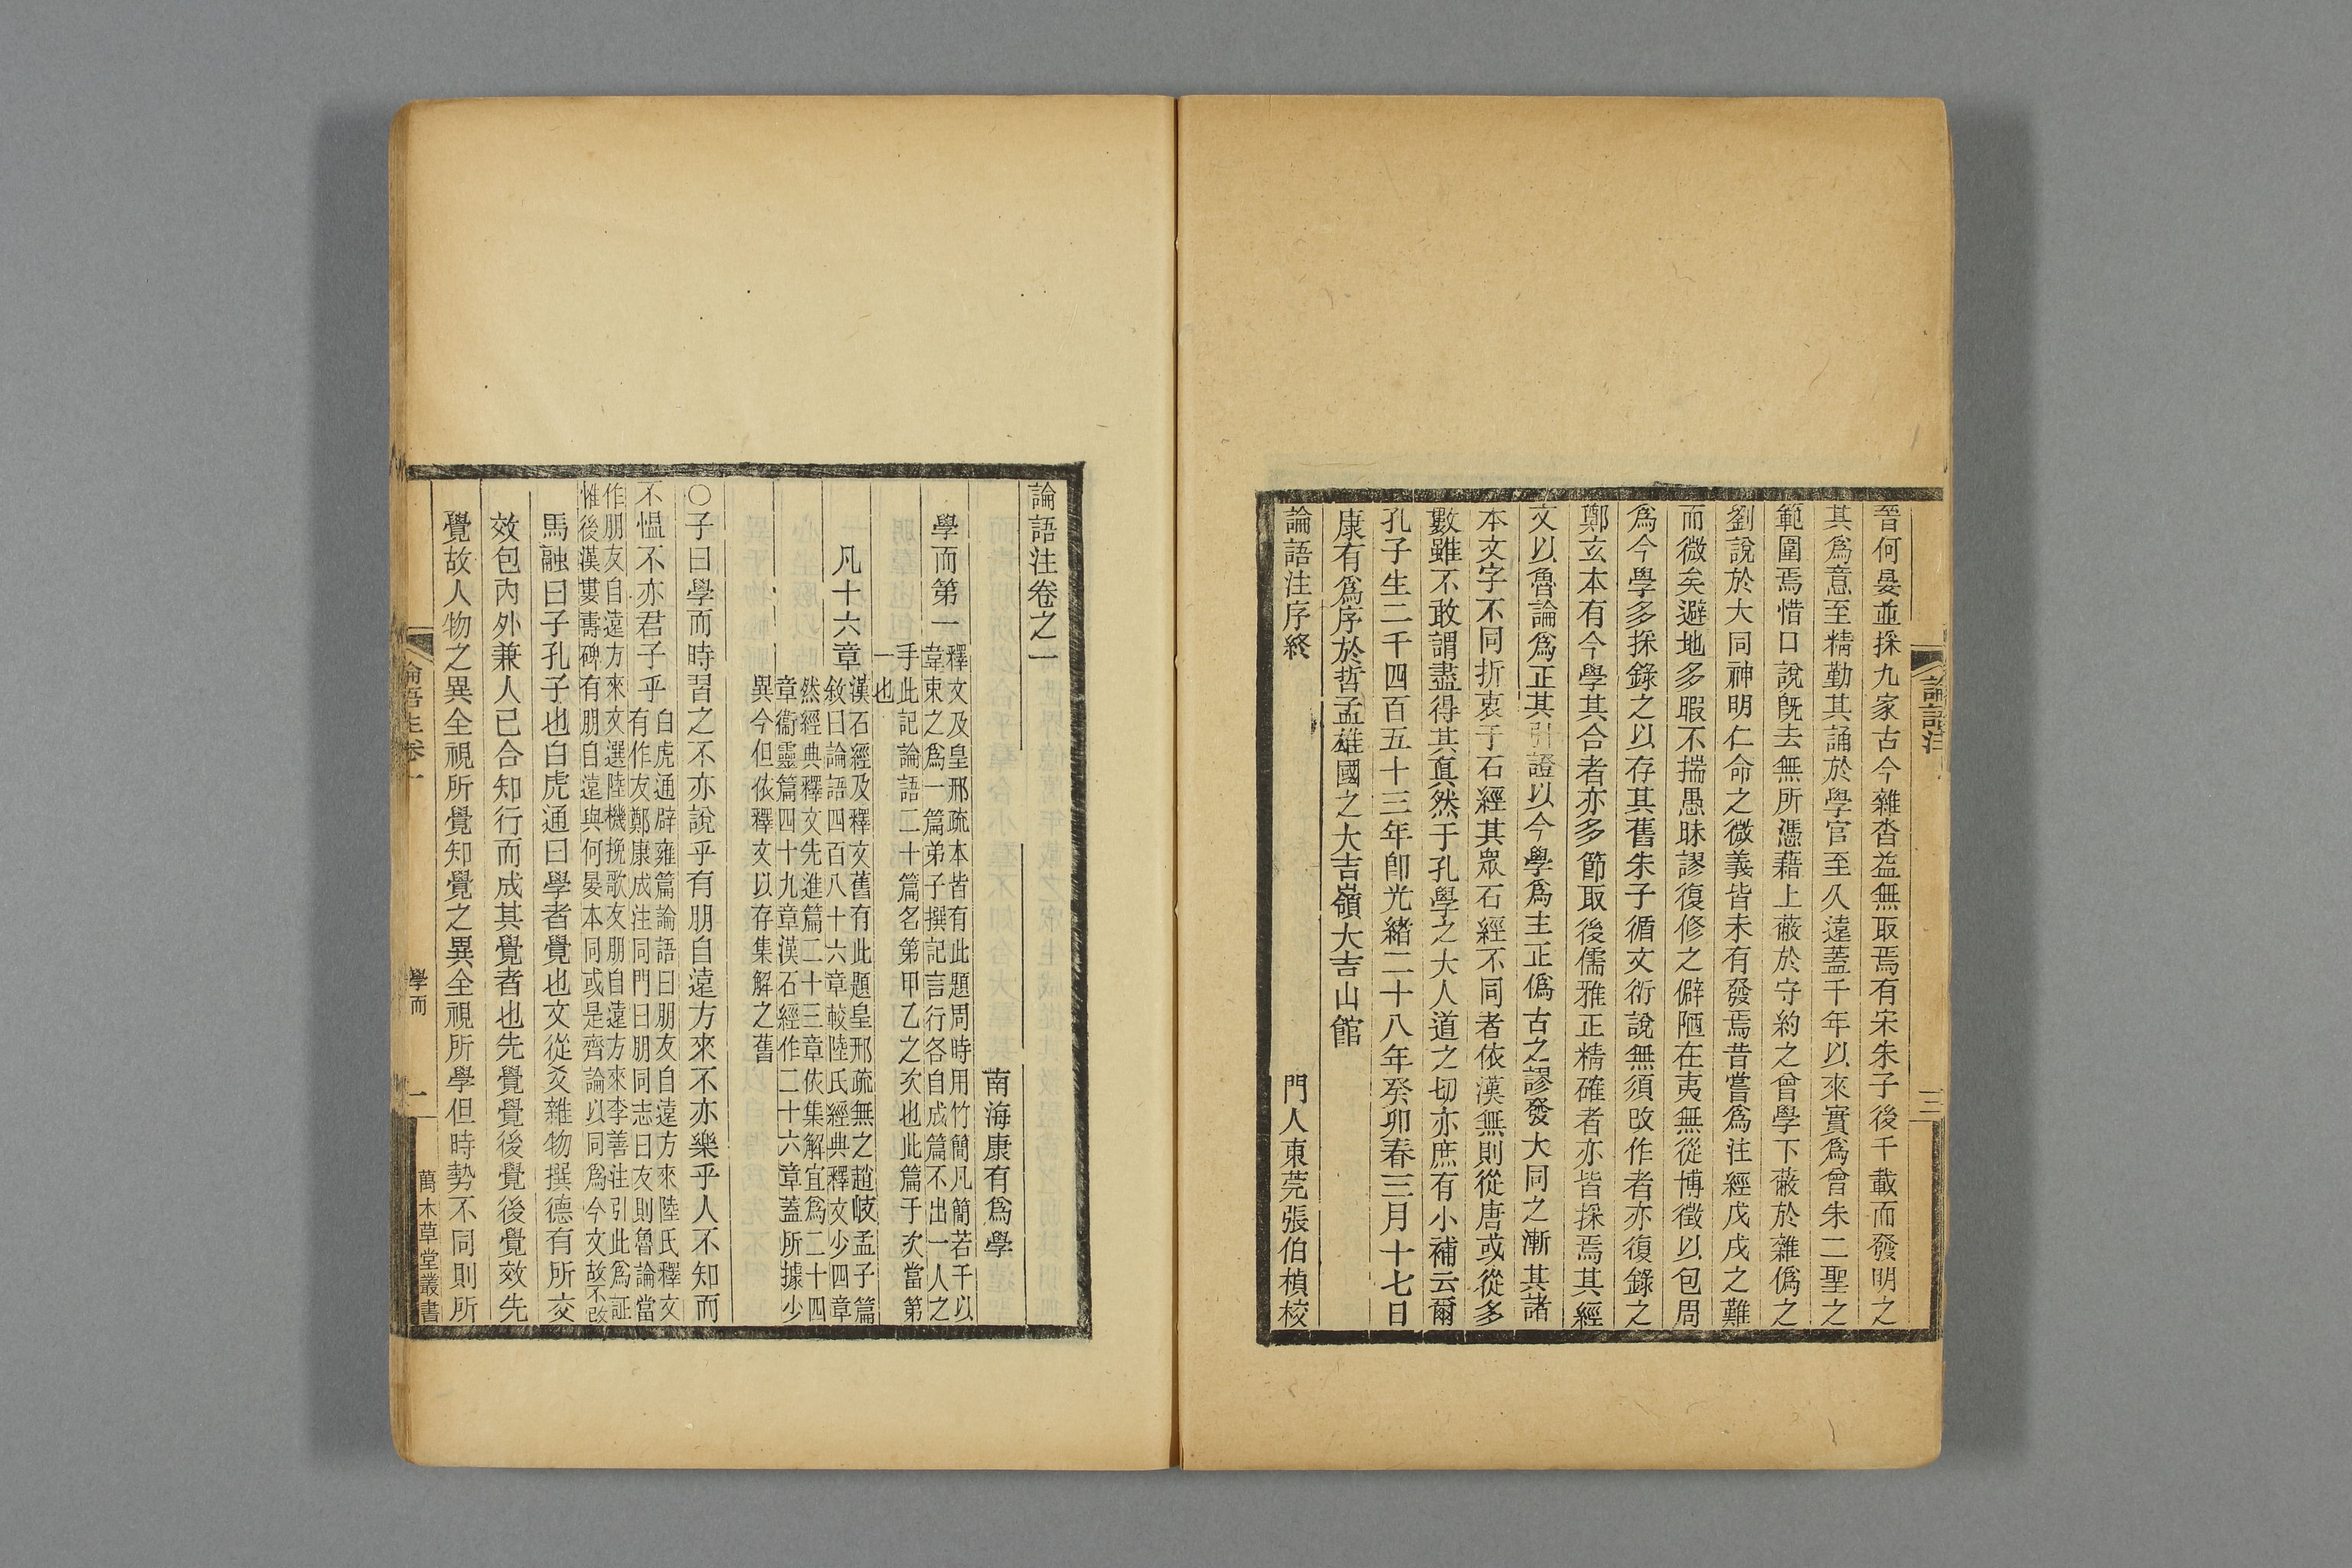 論語注
三
晉何晏並採九家古今雜沓益無取焉有宋朱子後千載而發明之
其爲意至精勤其誦於學官至久遠蓋千年以來實爲曾朱二聖之
範圍焉惜口說旣去無所憑藉上蔽於守約之曾學下蔽於雜僞之
劉說於大同神明仁命之微義皆未有發焉昔嘗爲注經戊戌之難
而微矣避地多暇不揣愚昧謬復修之僻陋在夷無從博徵以包周
爲今學多採錄之以存其舊朱子循文衍說無須改作者亦復錄之
鄭玄本有今學其合者亦多節取後儒雅正精確者亦皆採焉其經
文以魯論爲正其引證以今學爲主正僞古之謬發大同之漸其諸
本文字不同折衷于石經其眾石經不同者依漢無則從唐或從多
數雖不敢謂盡得其眞然于孔學之大人道之切亦庶有小補云爾
孔子生二千四百五十三年卽光緒二十八年癸卯春三月十七日
康有爲序於哲孟雄國之大吉嶺大吉山館
論語注序終
門人東莞張伯楨校
論語注卷之一
南海康有爲學
學而第一
釋文及皇邢疏本皆有此題周時用竹簡凡簡若干以
韋束之爲一篇弟子撰記言行各自成篇不出一人之
手此記論語二十篇名第甲乙之次也此篇于次當第
一也
凡十六章
漢石經及釋文舊有此題皇邢疏無之趙岐孟子篇
敘曰論語四百八十六章較陸氏經典釋文少四章
然經典釋文先進篇二十三章依集解宜爲二十四
章衞靈篇四十九章漢石經作二十六章蓋所據少
異今但依釋文以存集解之舊
○子曰學而時習之不亦說乎有朋自遠方來不亦樂乎人不知而
不慍不亦君子乎
白虎通辟雍篇論語曰朋友自遠方來陸氏釋文
有作友鄭康成注同門曰朋同志曰友則魯論當
作朋友自遠方來文選陸機挽歌友朋自遠方來李善注引此爲証
惟後漢婁壽碑有朋自遠與何晏本同或是齊論以同爲今文故不改
馬融曰子孔子也白虎通曰學者覺也文從爻雜物撰德有所交
效包內外兼人己合知行而成其覺者也先覺覺後覺後覺效先
覺故人物之異全視所覺知覺之異全視所學但時勢不同則所
論語注卷一
學而
一
萬木草堂叢書